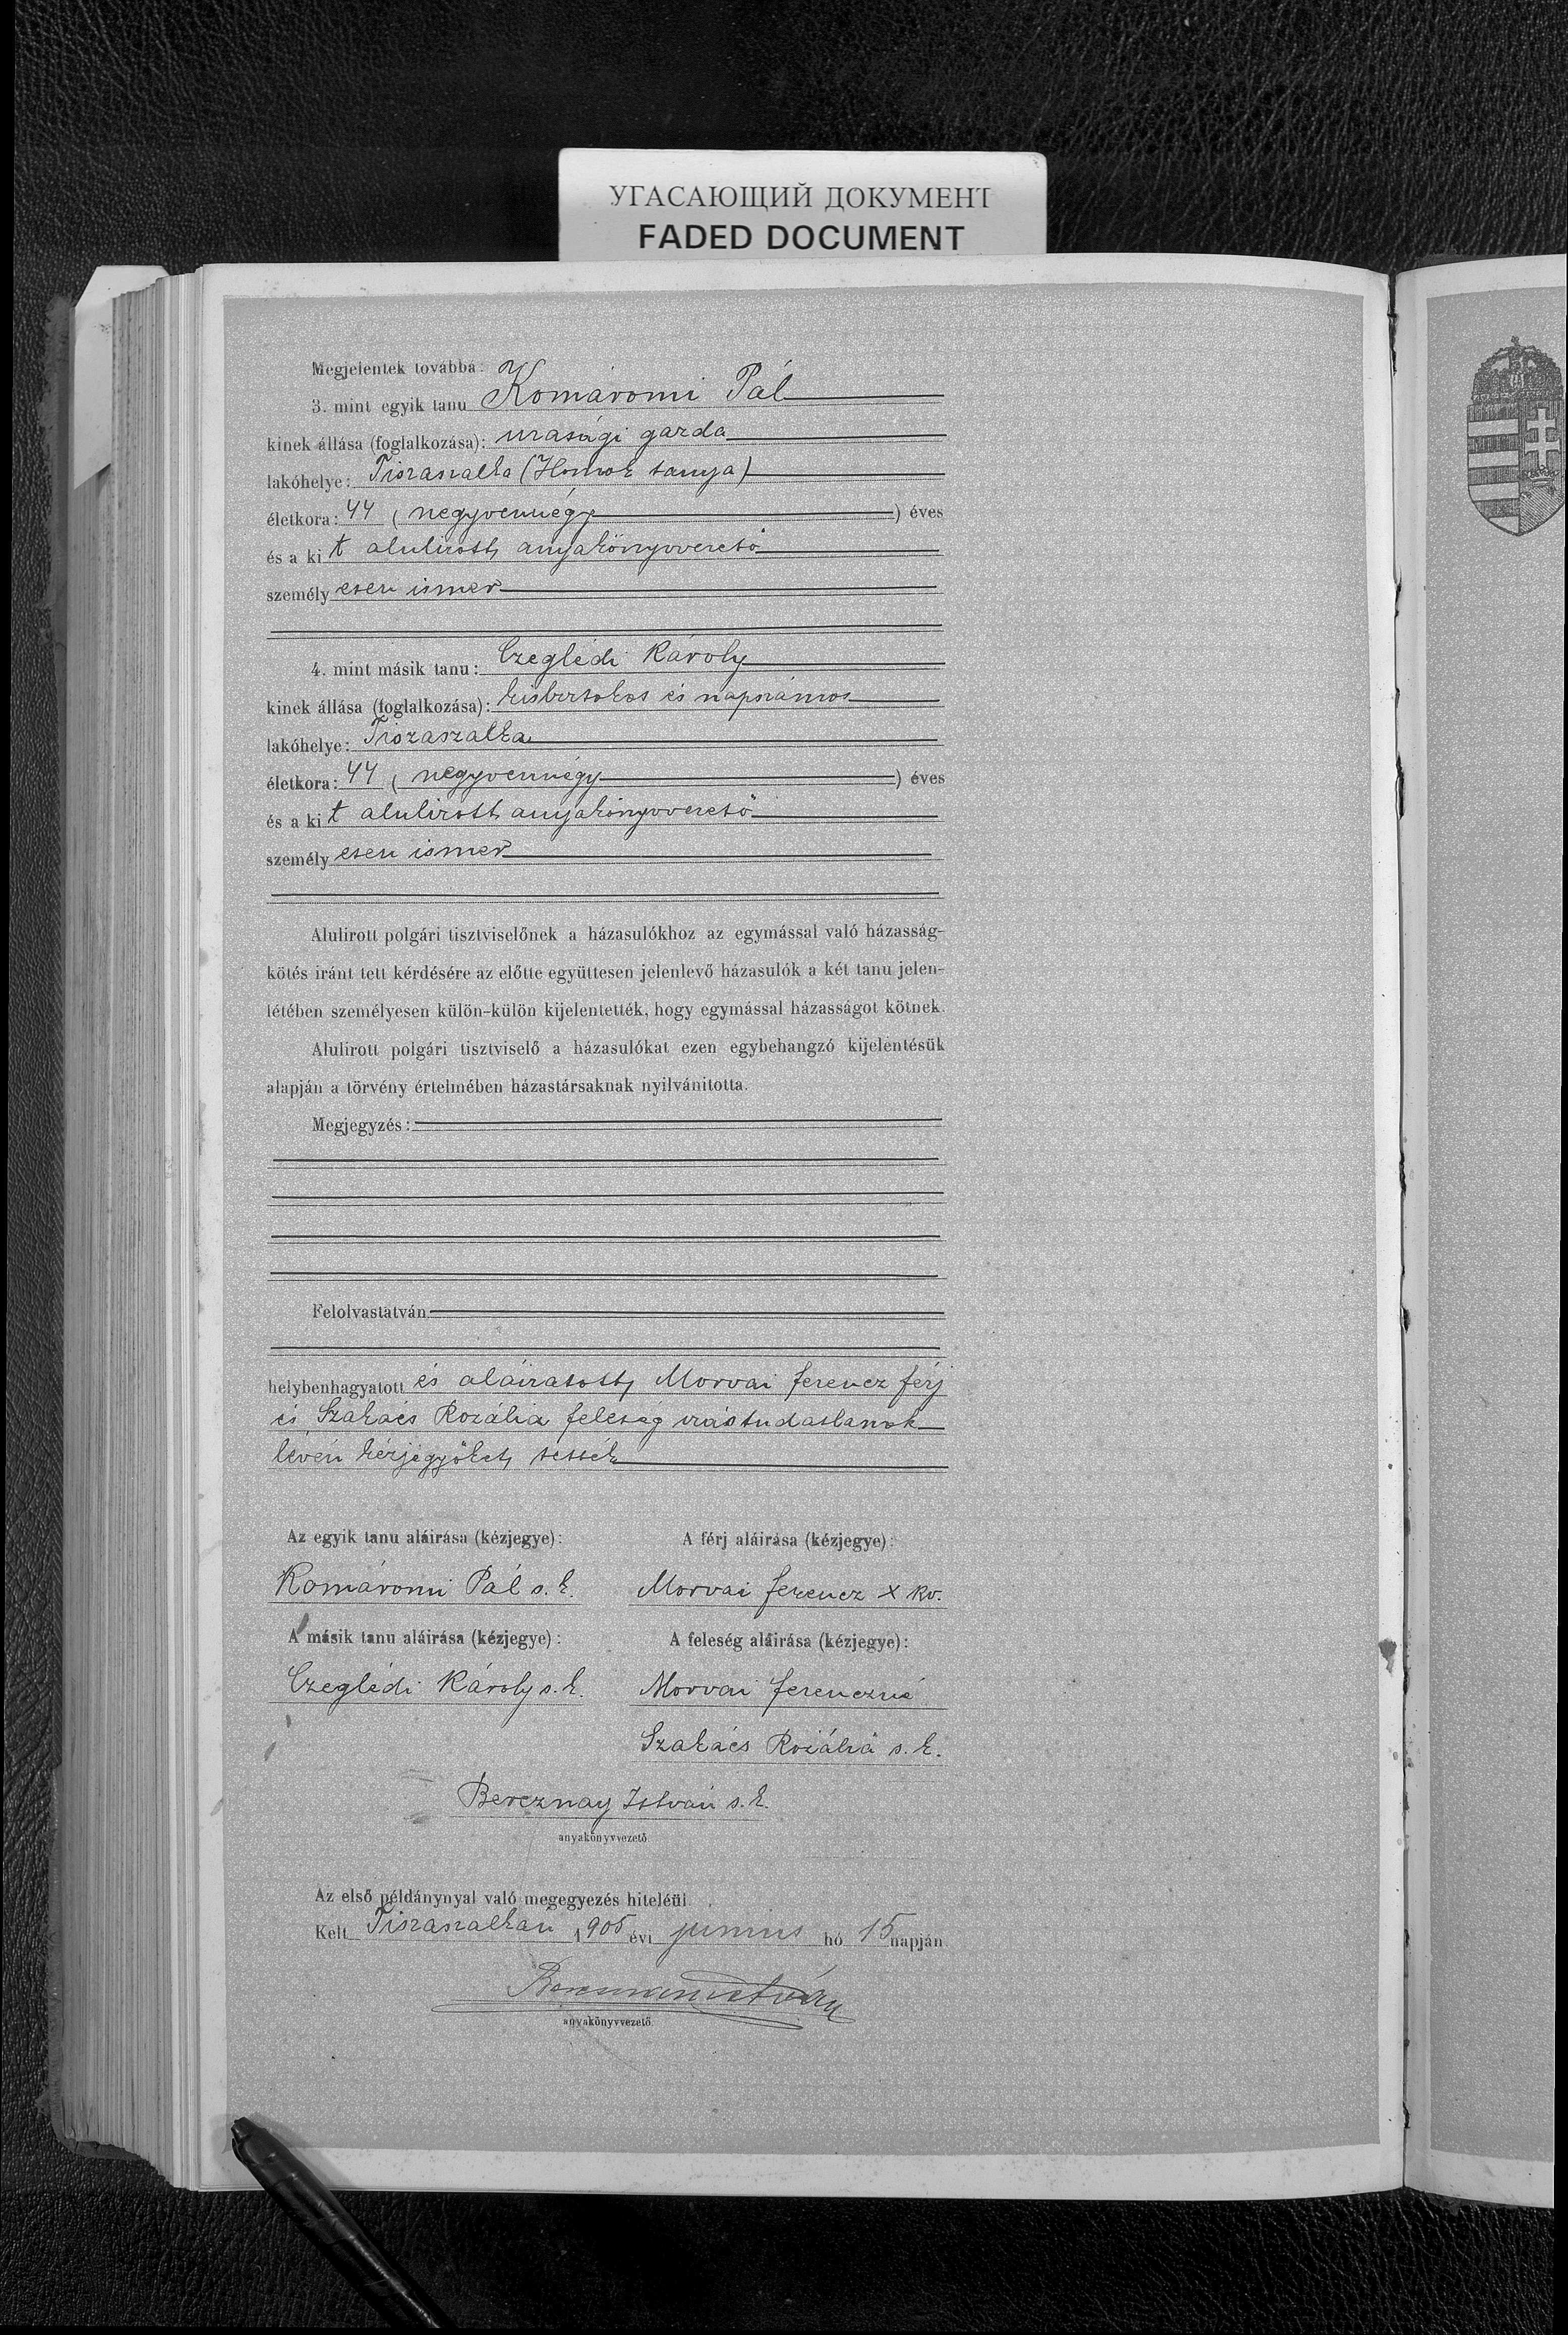 УГАСАЮЩИЙ ДОКУМЕНТ
FADED DOCUMENT
Megjelentek továbbá:
3. mint egyik tanu Komáromi Pál
kinek állása (foglalkozása): urasági gazda
lakóhelye: Tiszaszalka (Homok tanya)
életkora: 44 (negyvennégy) éves
és a kit alulirott anyakönyvvezető
személyesen ismer
4. mint másik tanu: Czeglédi Károly
kinek állása (foglalkozása): kisbirtokos és napszámos
lakóhelye: Tiszaszalka
életkora: 44 (negyvennégy) éves
és a kit alulirott anyakönyvvezető
személyesen ismer
Alulirott polgári tisztviselőnek a házasulókhoz az egymással való házasság-
kötés iránt tett kérdésére az előtte együttesen jelenlevő házasulók a két tanu jelen-
létében személyesen külön-külön kijelentették, hogy egymással házasságot kötnek.
Alulirott polgári tisztviselő a házasulókat ezen egybehangzó kijelentésük
alapján a törvény értelmében házastársaknak nyilvánitotta.
Megjegyzés:
Felolvastatván
helybenhagyatott és aláiratott, Morvai Ferencz férj
és Szakács Rozália feleség irástudatlanok
lévén kézjegyöket tették
Az egyik tanu aláirása (kézjegye): A férj aláirása (kézjegye):
Komáromi Pál s. k. Morvai Ferencz x kv.
A másik tanu aláirása (kézjegye): A feleség aláirása (kézjegye):
Czeglédi Károly s. k. Morvai Ferenczné
Szakács Rozália s. k.
Bereznay István s. k.
anyakönyvvezető
Az első példánynyal való megegyezés hiteléül
Kelt Tiszaszalkán 1905 évi junius hó 15 napján
Bereznay István
anyakönyvvezető